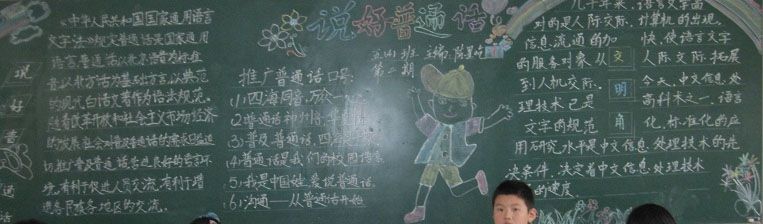 说好普通话
《中华人民共和国国家通用语言
文字法》规定普通话是国家通用
语言。普通话以北京语音为标准
音,以北方话为基础方言,以典范
的现代白话文著作为语法规范。
随着改革开放和社会主义市场经济
的发展,社会对普及普通话的需求日益迫
切。推广普及普通话,营造良好的语言环
境,有利于促进人员交流,有利于增
进各民族各地区的交流。
说
好
普
通
话
第二期
推广普通话口号:
(1)四海同音,万众一
(2)普通话神州
(3)普及普通话,四海
(4)普通话是我们的校园语言。
(5)我是中国娃,爱说普通话。
(6)沟通——从普通话开始
几十年来,语言文字面
对的是人际交际、计算机的出现、
信息流通的加快,使语言文字
的服务对象从人际交际拓展
到人机交际。今天,中文信息处
理技术已是高科技之一,语言
文字的规范化、标准化的应
用研究水平是中文信息处理技术的先
决条件,决定着中文信息处理技术
的速度
文
明
角